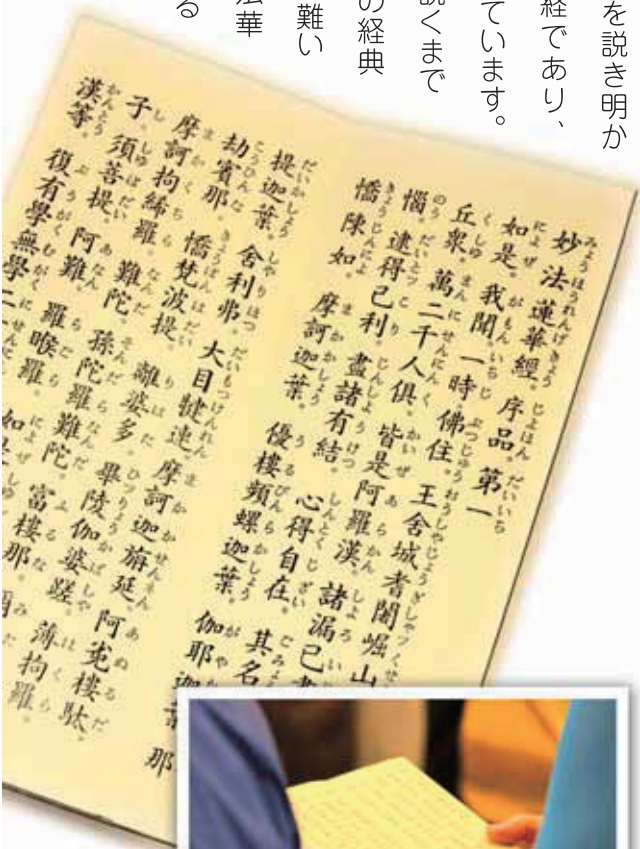 を説き明か
経であり、
ています。
説くまで
の経典
難い
華
る
妙法蓮華經。序品。第一
如是。我聞。一時佛住。王舍城耆闍崛山
丘衆。萬二千人俱。皆是阿羅漢。諸漏已
惱。逮得己利。盡諸有結。心得自在。其名
憍陳如。摩訶迦葉。優樓頻螺迦葉。伽耶迦 那
提迦葉。舍利弗。大目犍連。摩訶迦旃延。阿㝹樓馱。
劫賓那。憍梵波提。離婆多。畢陵伽婆蹉。薄拘羅。
摩訶拘絺羅。難陀。孫陀羅難陀。富樓那。
子。須菩提。阿難。羅睺羅。如
漢等。復有學無學二